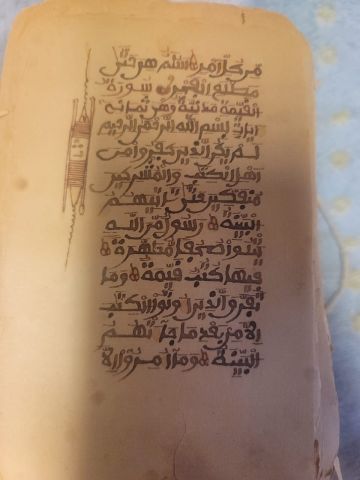 من كل امر سلم هي حتى
مطلع الفجر سورة
القيمة مدنية وهي ثماني
ايات بسم الله الرحمن الرحيم
لم يكن الذين كفروا من
اهل الكتب والمشركين
منفكين حتى تاتيهم
البينة رسول من الله
يتلوا صحفا مطهرة
فيها كتب قيمة وما
تفرق الذين اوتوا الكتب
الا من بعد ما جاءتهم
البينة وما امروا الا